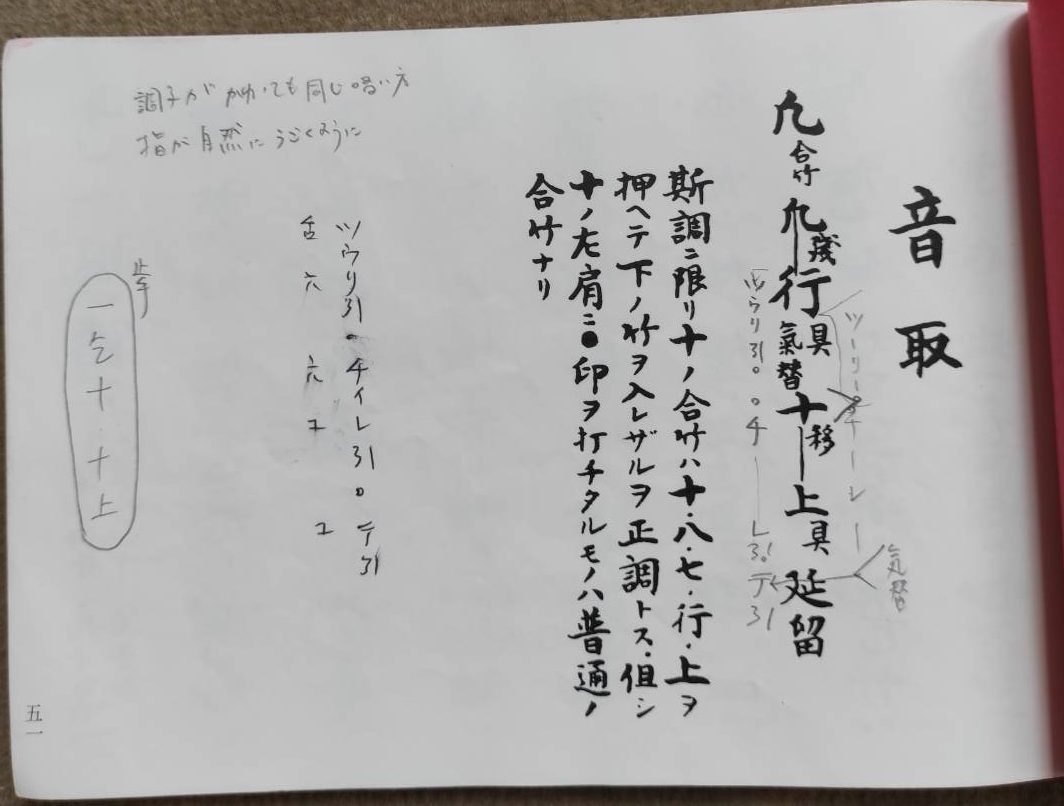 音取
凢合竹凢残行具氣替十移上具延留
ツーリーチーレー
氣替
ツウリ引。。チーレ引テ引
斯調ニ限リ十ノ合竹ハ十・八・七・行・上ヲ
押ヘテ下ノ竹ヲ入レザルヲ正調トス・但シ
十ノ左肩ニ●印ヲ打チタルモノハ普通ノ
合竹ナリ
調子がかわっても同じ唱い方
指が自然にうごくように
ツウリ引。チイレ引。テ引
六六ユユ
止手
一乞十十上
五一